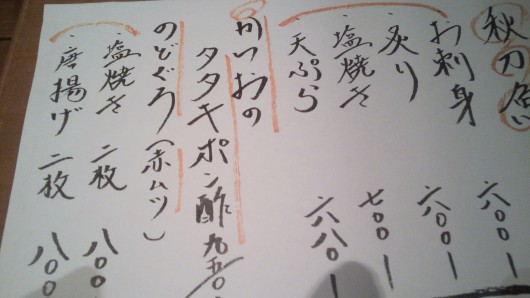 秋刀魚
お刺身 六〇〇ー
炙り 六〇〇ー
塩焼き 七〇〇ー
天ぷら 六八〇ー
かつおの
タタキポン酢 九五〇ー
のどぐろ(赤ムツ)
塩焼き 二枚 八〇〇
唐揚げ 二枚 八〇〇